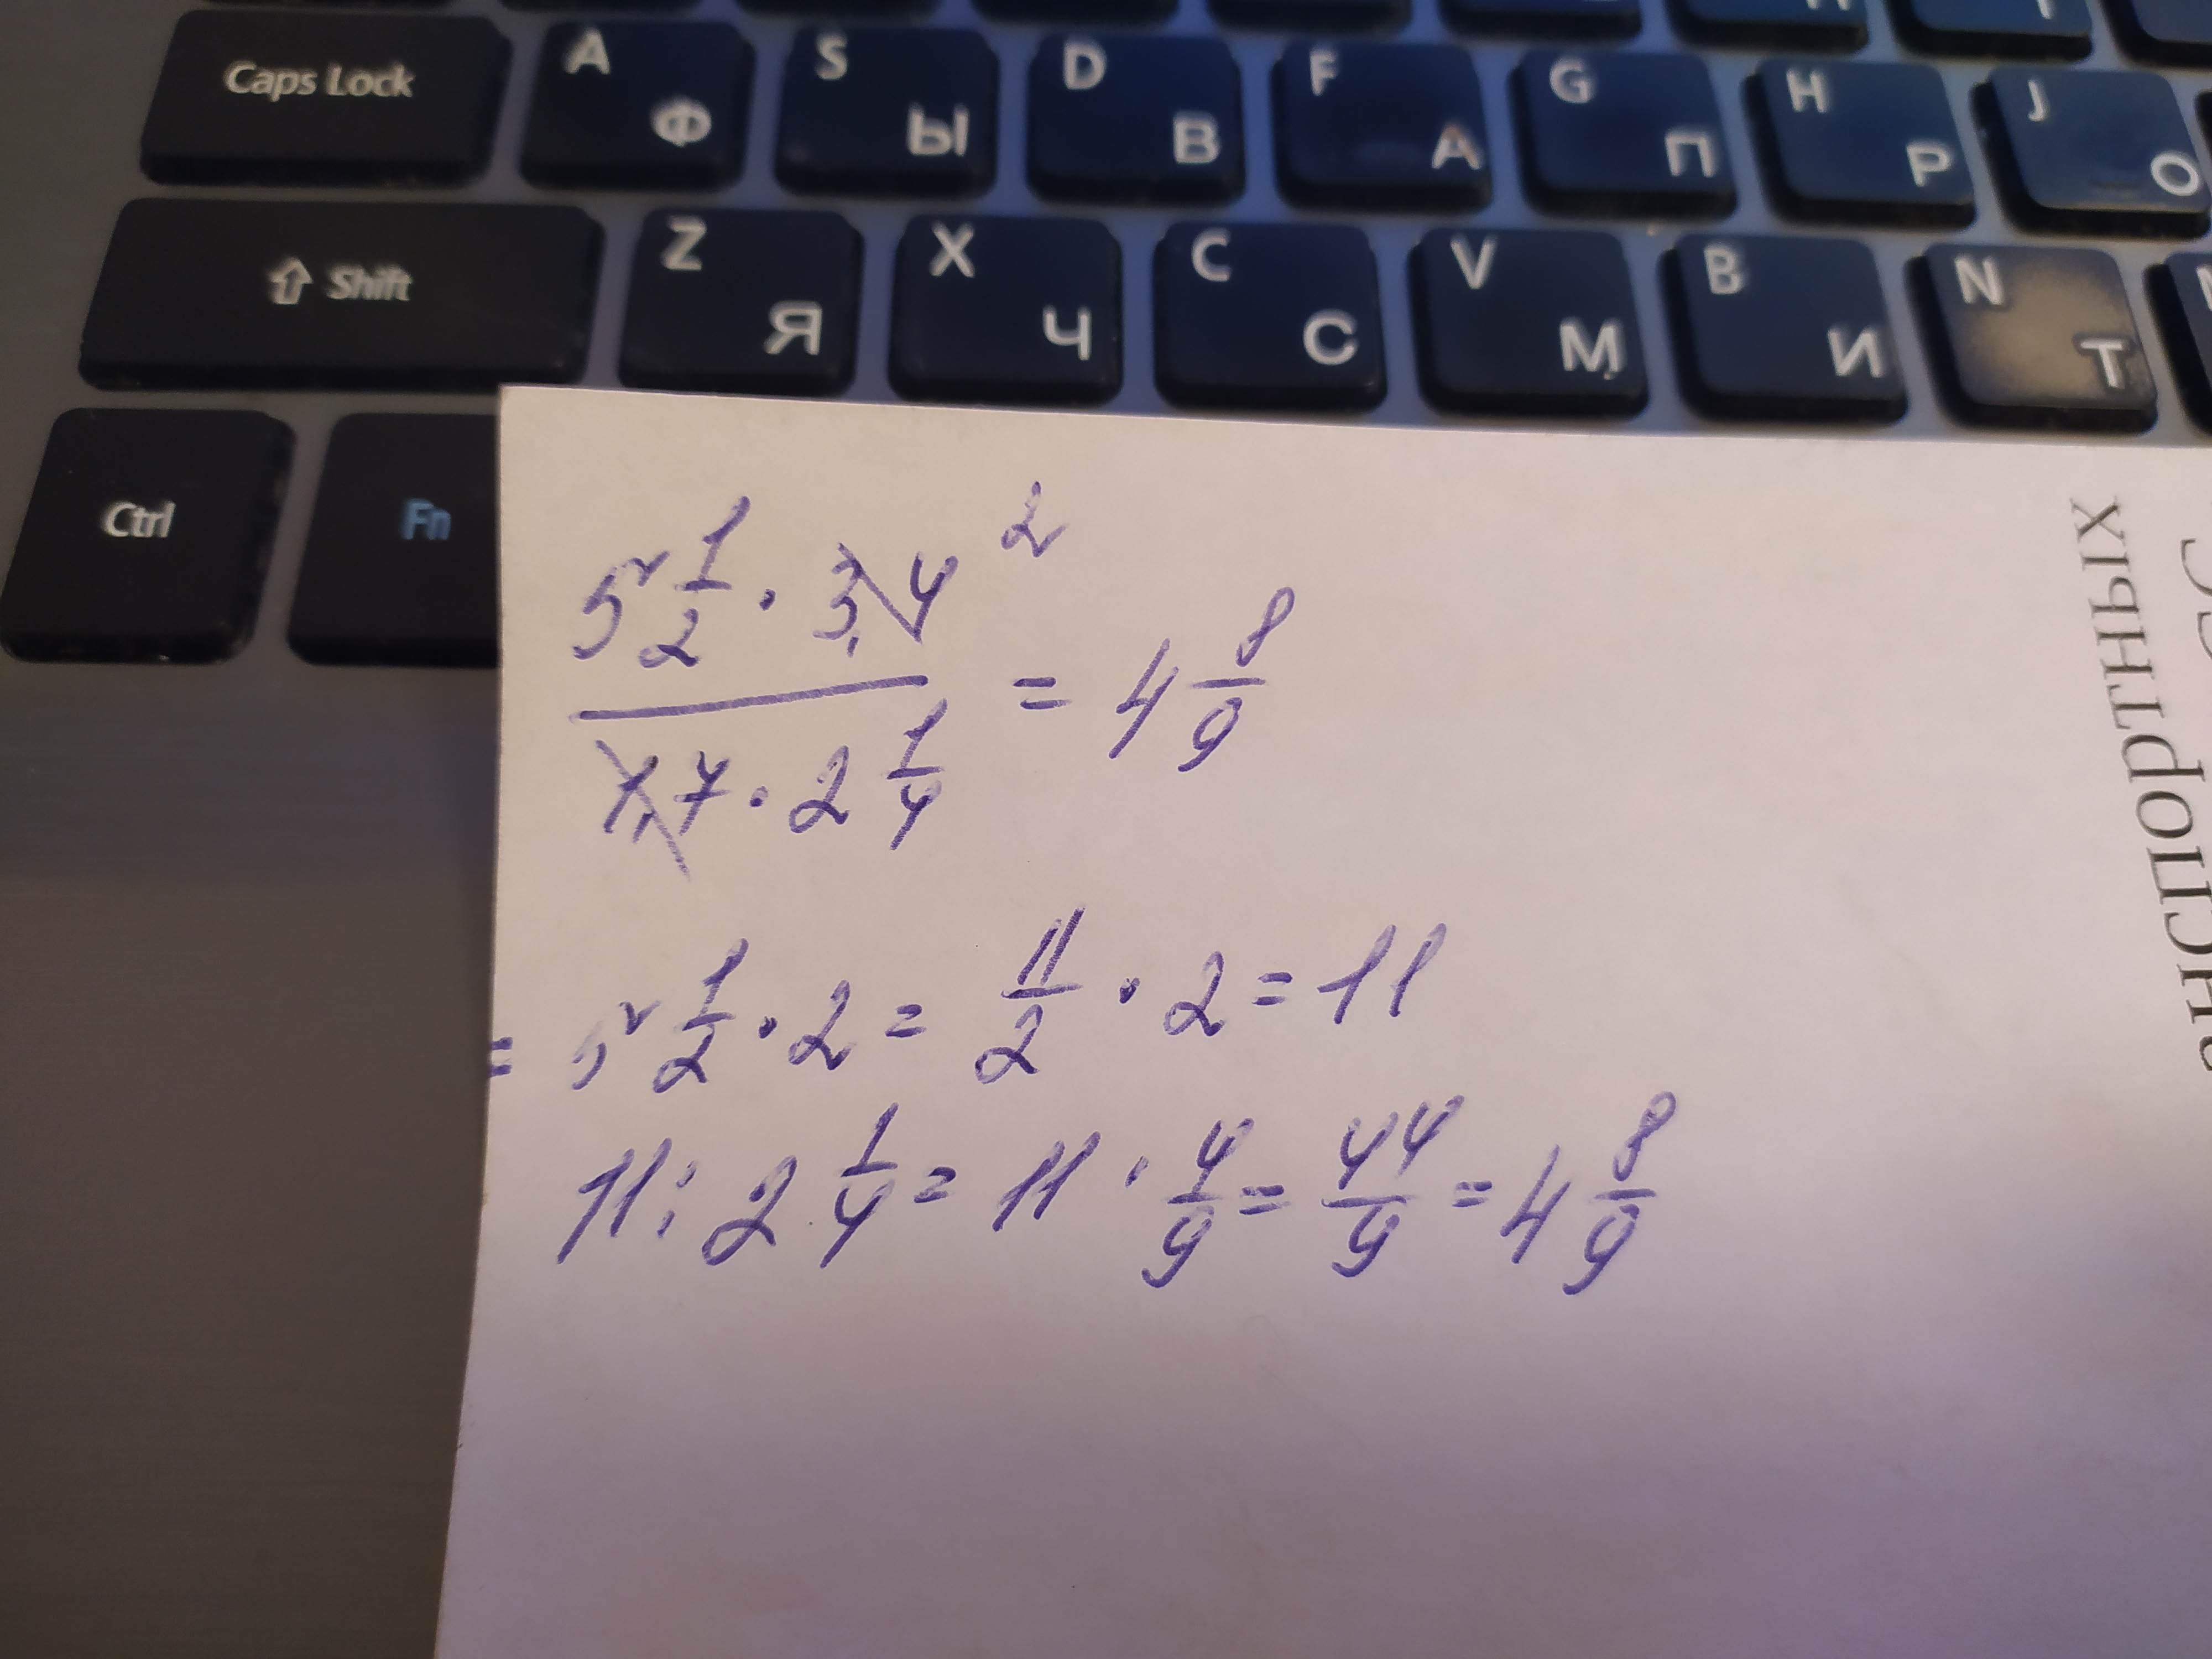 Caps Lock A Ф S Ы D В F А G П H Р J О
Shift Z Я X Ч C С V М B И N Т
Ctrl Fn
5 1/2 · 3,4 2
1,7 · 2 1/4
= 4 8/9
= 5 1/2 · 2 = 11/2 · 2 = 11
11 : 2 1/4 = 11 · 4/9 = 44/9 = 4 8/9